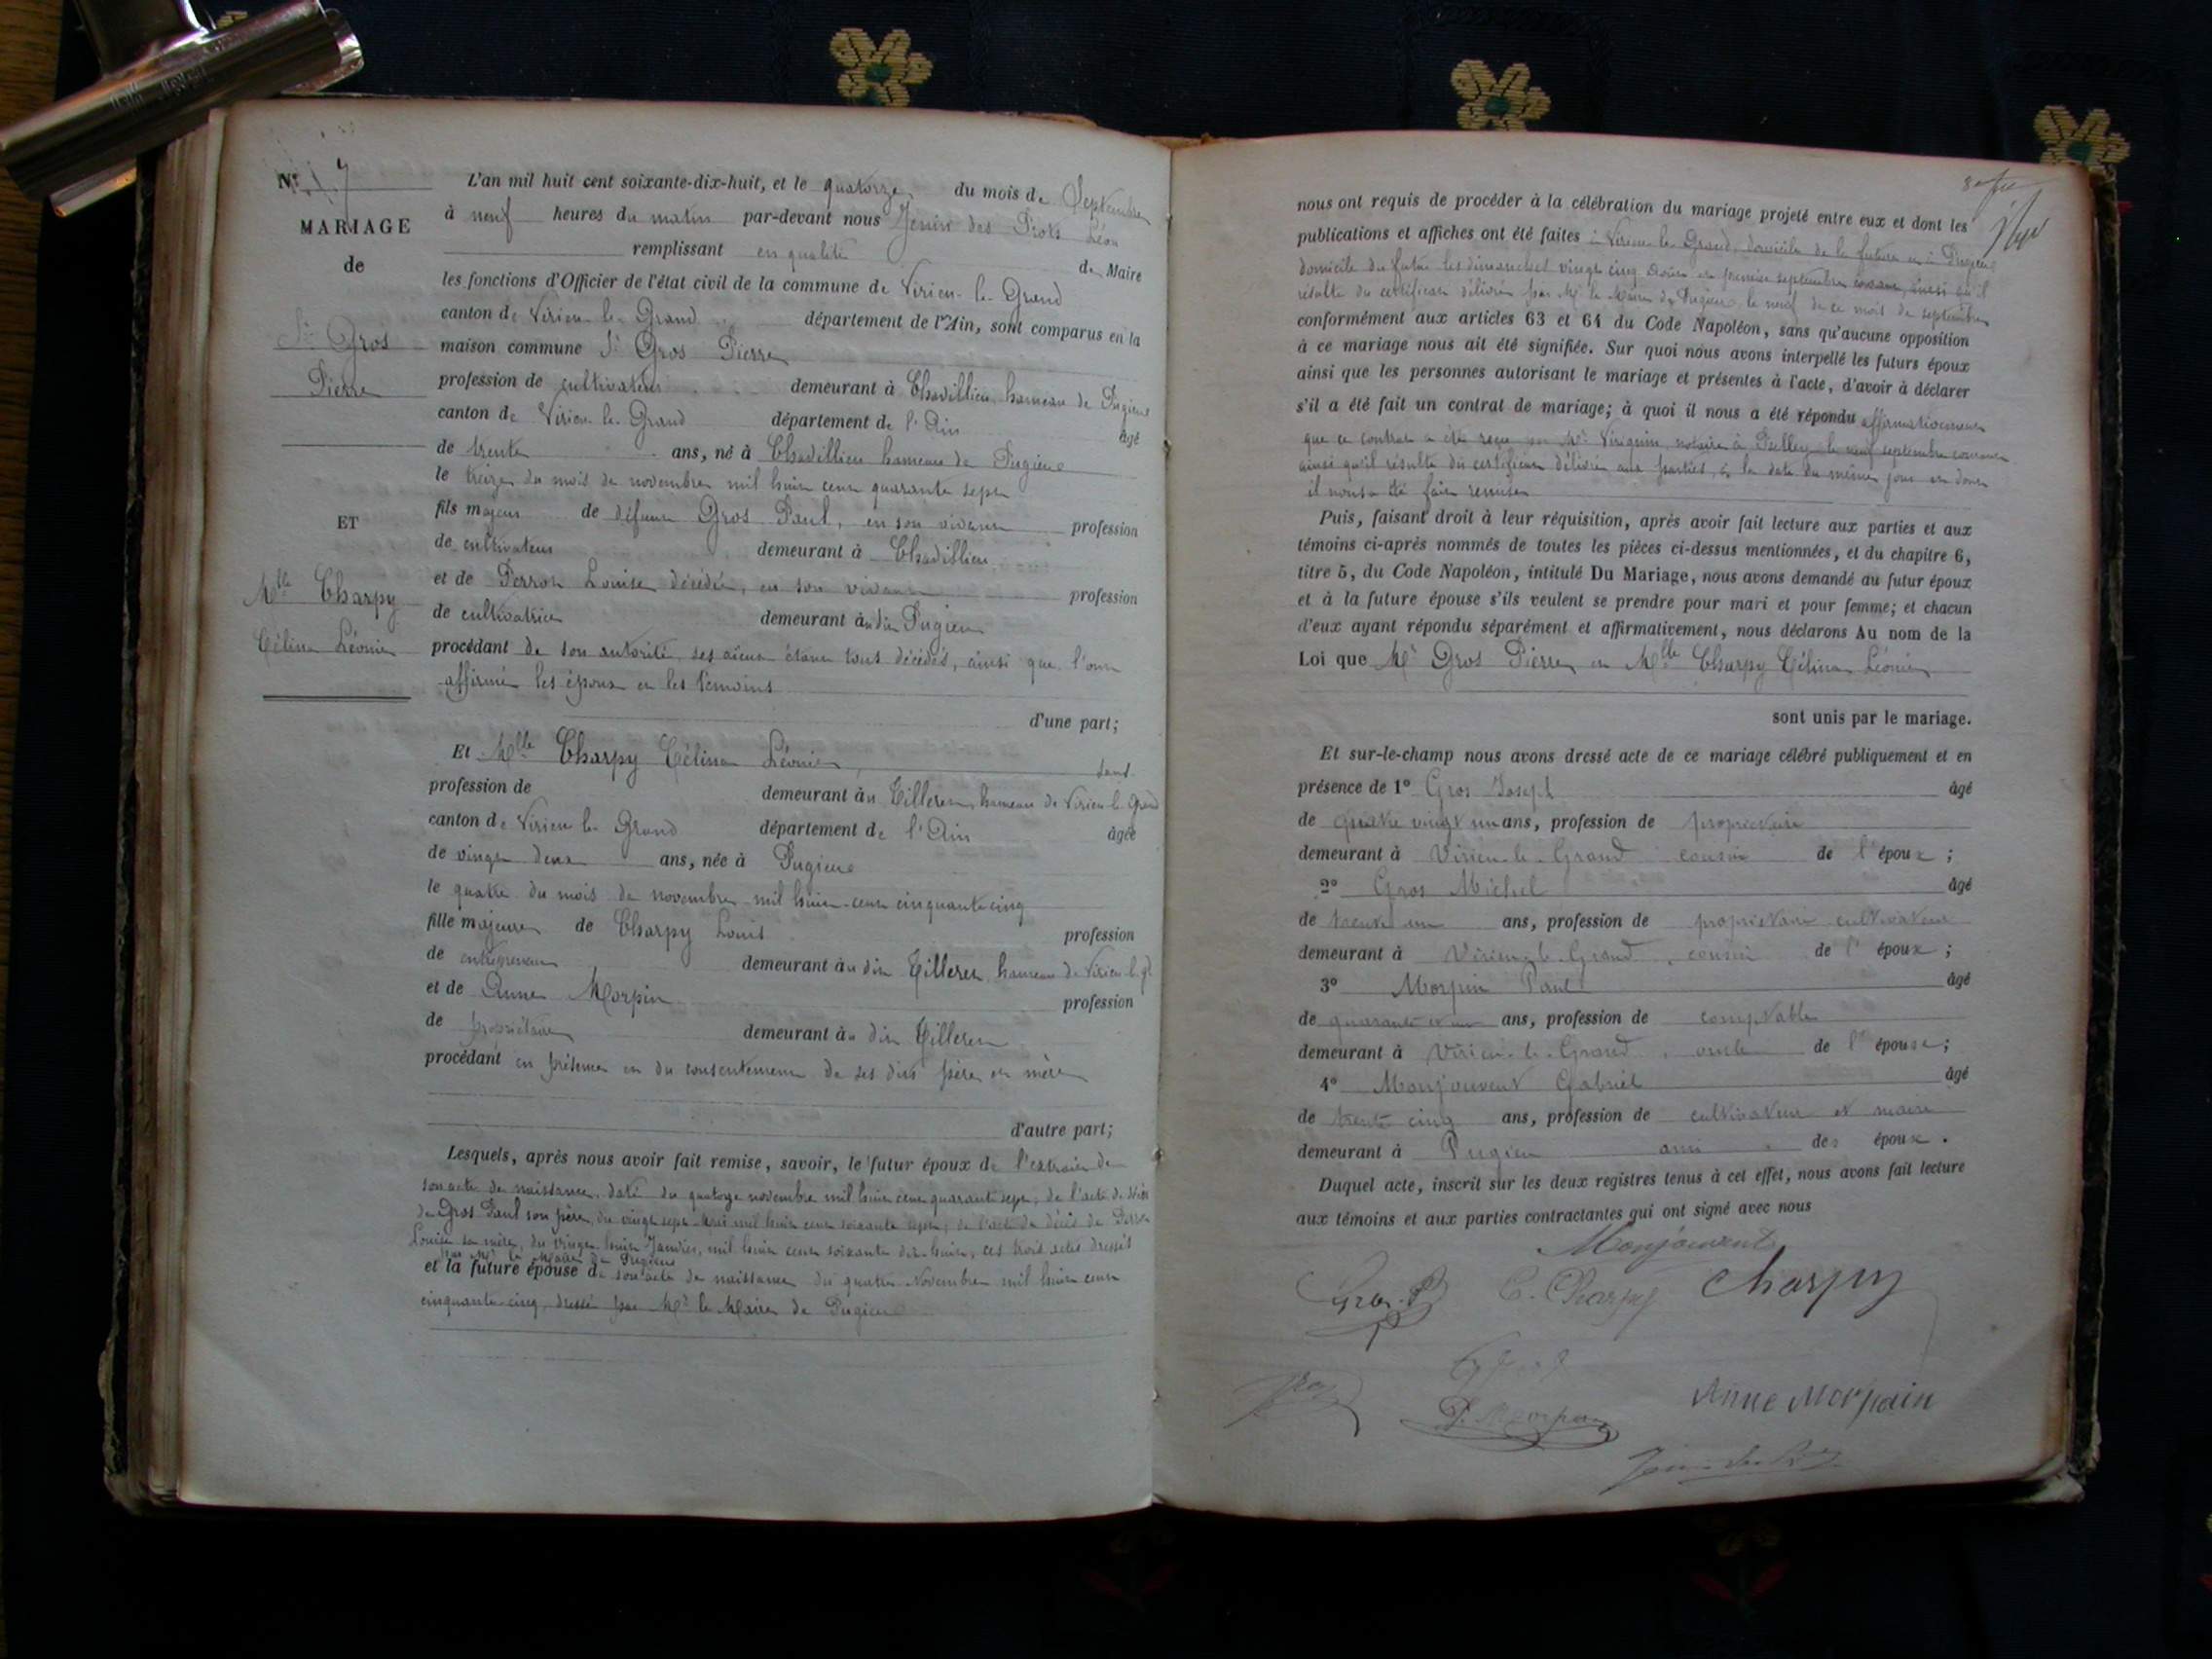 N° 17
MARIAGE
de
Sr Gros
Pierre
ET
Mlle Charpy
Célina Léonie
L'an mil huit cent soixante-dix-huit, et le quatorze du mois de Septembre
à neuf heures du matin par-devant nous Jenin des Prots Léon
remplissant en qualité de Maire
les fonctions d'Officier de l'état civil de la commune de Virieu-le-Grand
canton de Virieu-le-Grand département de l'Ain, sont comparus en la
maison commune Sr Gros Pierre
profession de cultivateur demeurant à Chavillieu, hameau de Pugieu
canton de Virieu-le-Grand département de l'Ain âgé
de trente ans, né à Chavillieu hameau de Pugieu
le treize du mois de novembre mil huit cent quarante sept
fils majeur de défunt Gros Paul, en son vivant profession
de cultivateur demeurant à Chavillieu
et de Perron Louise décédée, en son vivant profession
de cultivatrice demeurant au dit Pugieu
procédant de son autorité, ses aïeux étant tous décédés, ainsi que l'ont
affirmé les époux et les témoins
d'une part;
Et Mlle Charpy Célina Léonie, sans
profession de demeurant à Cilleren, hameau de Virieu-le-Grand
canton de Virieu-le-Grand département de l'Ain âgée
de vingt deux ans, née à Pugieu
le quatre du mois de novembre mil huit-cent cinquante cinq
fille majeure de Charpy Louis profession
de entrepreneur demeurant au dit Cilleren, hameau de Virieu-l-gd
et de Anne Morpin profession
de propriétaire demeurant au dit Cilleren
procédant en présence et du consentement de ses dits père et mère
d'autre part;
Lesquels, après nous avoir fait remise, savoir, le futur époux de l'extrait de
son acte de naissance, daté du quatorze novembre mil huit cent quarante sept, de l'acte de décès
de Gros Paul son père, du vingt sept mil huit cent soixante sept, de l'acte de décès de Perron
Louise sa mère, du vingt huit Janvier, mil huit cent soixante dix huit, ces trois actes dressés
par Mr le Maire de Pugieu
et la future épouse de son acte de naissance du quatre Novembre mil huit cent
cinquante-cinq, dressé par Mr le Maire de Pugieu
nous ont requis de procéder à la célébration du mariage projeté entre eux et dont les
publications et affiches ont été faites à Virieu-le-Grand, domicile de la future et à Pugieu
domicile du futur les dimanches vingt cinq Août et premier septembre courant, ainsi qu'il
résulte du certificat délivré par Mr le Maire de Pugieu le neuf de ce mois de septembre
conformément aux articles 63 et 64 du Code Napoléon, sans qu'aucune opposition
à ce mariage nous ait été signifiée. Sur quoi nous avons interpellé les futurs époux
ainsi que les personnes autorisant le mariage et présentes à l'acte, d'avoir à déclarer
s'il a été fait un contrat de mariage; à quoi il nous a été répondu affirmativement
que ce contrat a été reçu par Me notaire à Belley le neuf septembre courant
ainsi qu'il résulte du certificat délivré aux parties, à la date du même jour et dont
il nous a été fait remise
Puis, faisant droit à leur réquisition, après avoir fait lecture aux parties et aux
témoins ci-après nommés de toutes les pièces ci-dessus mentionnées, et du chapitre 6,
titre 5, du Code Napoléon, intitulé Du Mariage, nous avons demandé au futur époux
et à la future épouse s'ils veulent se prendre pour mari et pour femme; et chacun
d'eux ayant répondu séparément et affirmativement, nous déclarons Au nom de la
Loi que Mr Gros Pierre et Mlle Charpy Célina Léonie
sont unis par le mariage.
Et sur-le-champ nous avons dressé acte de ce mariage célébré publiquement et en
présence de 1° Gros Joseph âgé
de quatre vingt un ans, profession de propriétaire
demeurant à Virieu-le-Grand cousin de l'époux;
2° Gros Michel âgé
de trente un ans, profession de propriétaire cultivateur
demeurant à Virieu-le-Grand, cousin de l'époux;
3° Morpin Paul âgé
de quarante et un ans, profession de comptable
demeurant à Virieu-le-Grand, oncle de l'épouse;
4° Monjouvent Gabriel âgé
de trente cinq ans, profession de cultivateur et maire
demeurant à Pugieu ami des époux.
Duquel acte, inscrit sur les deux registres tenus à cet effet, nous avons fait lecture
aux témoins et aux parties contractantes qui ont signé avec nous
Monjouvent
Gros P C. Charpy Charpy
Gros
P. Morpain Anne Morpain